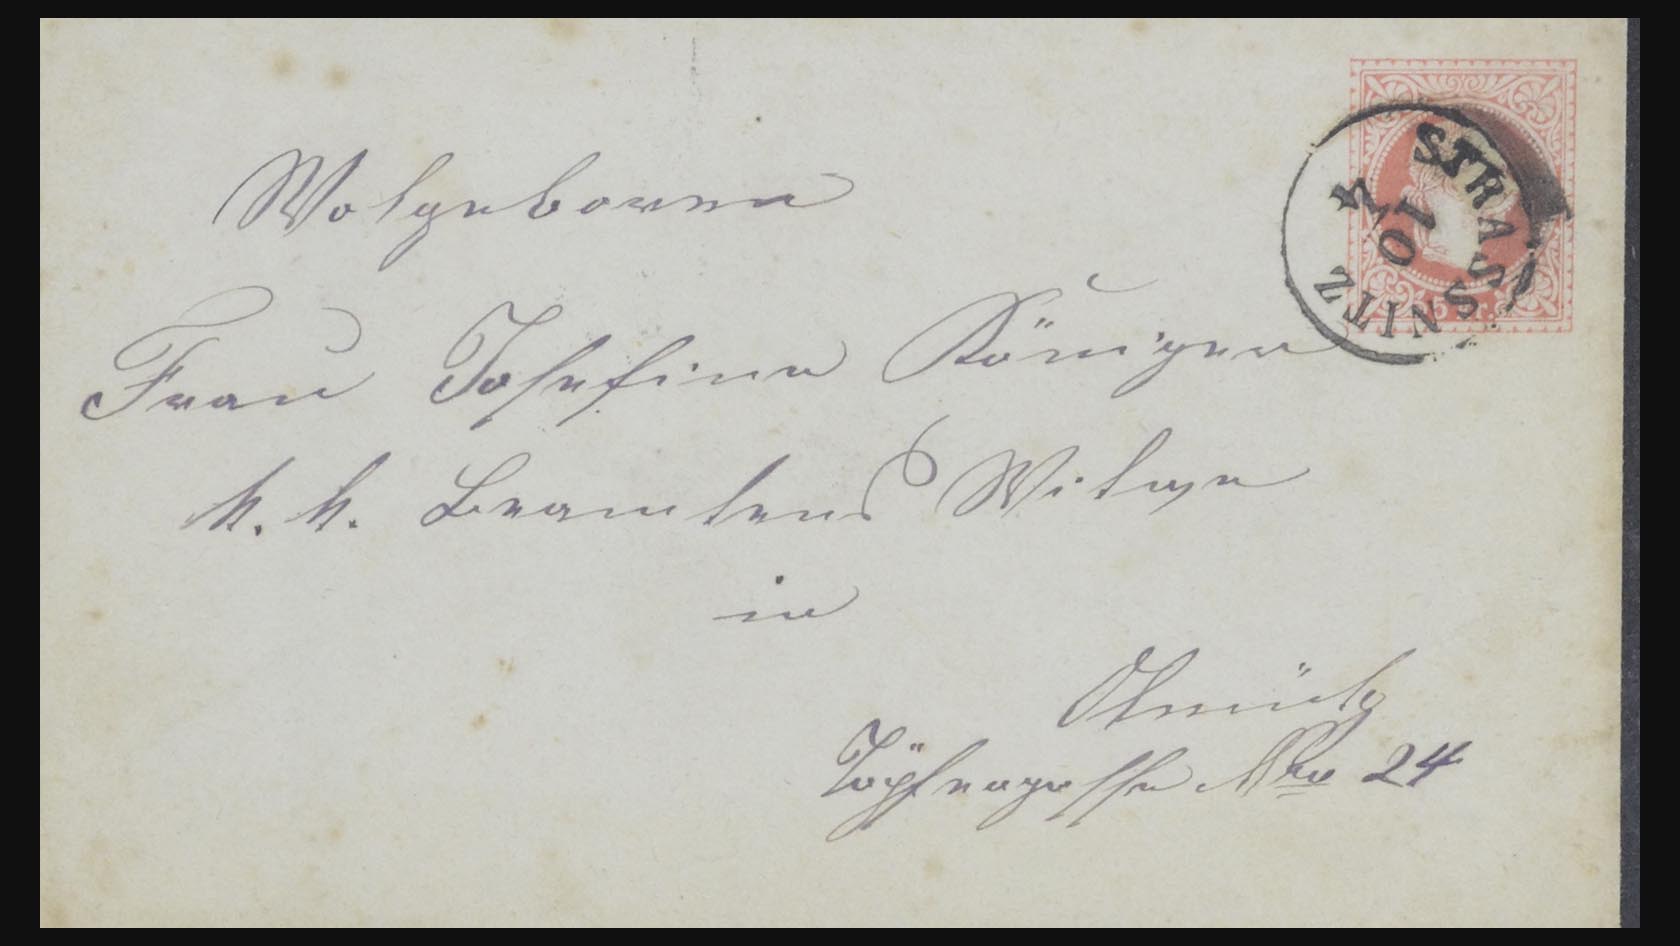 Wolgeboren
Frau Josefine Königer
k. k. Beamtens Witwe
in
Olmütz
Töpfergasse Nro 24
STRASSNITZ
10
4